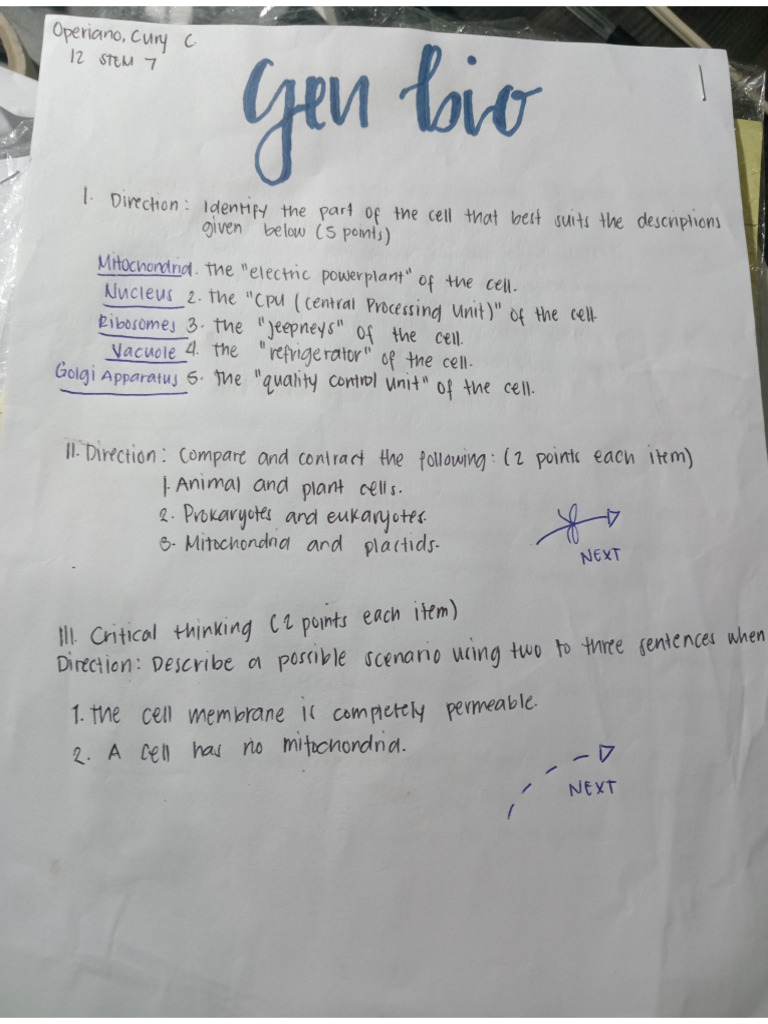 Operiano, Cury C
12 STEM 7
1
Gen bio
I. Direction: Identify the part of the cell that best suits the descriptions
given below (5 points)
Mitochondria. The "electric powerplant" of the cell.
Nucleus 2. The "CPU (Central Processing Unit)" of the cell.
Ribosomes 3. The "jeepneys" of the cell.
Vacuole 4. The "refrigerator" of the cell.
Golgi Apparatus 5. The "quality control unit" of the cell.
II. Direction: Compare and contract the following: (2 points each item)
1. Animal and plant cells.
2. Prokaryotes and eukaryotes.
3. Mitochondria and plactids.
NEXT
III. Critical thinking (2 points each item)
Direction: Describe a possible scenario using two to three sentences when
1. The cell membrane is completely permeable.
2. A cell has no mitochondria.
NEXT